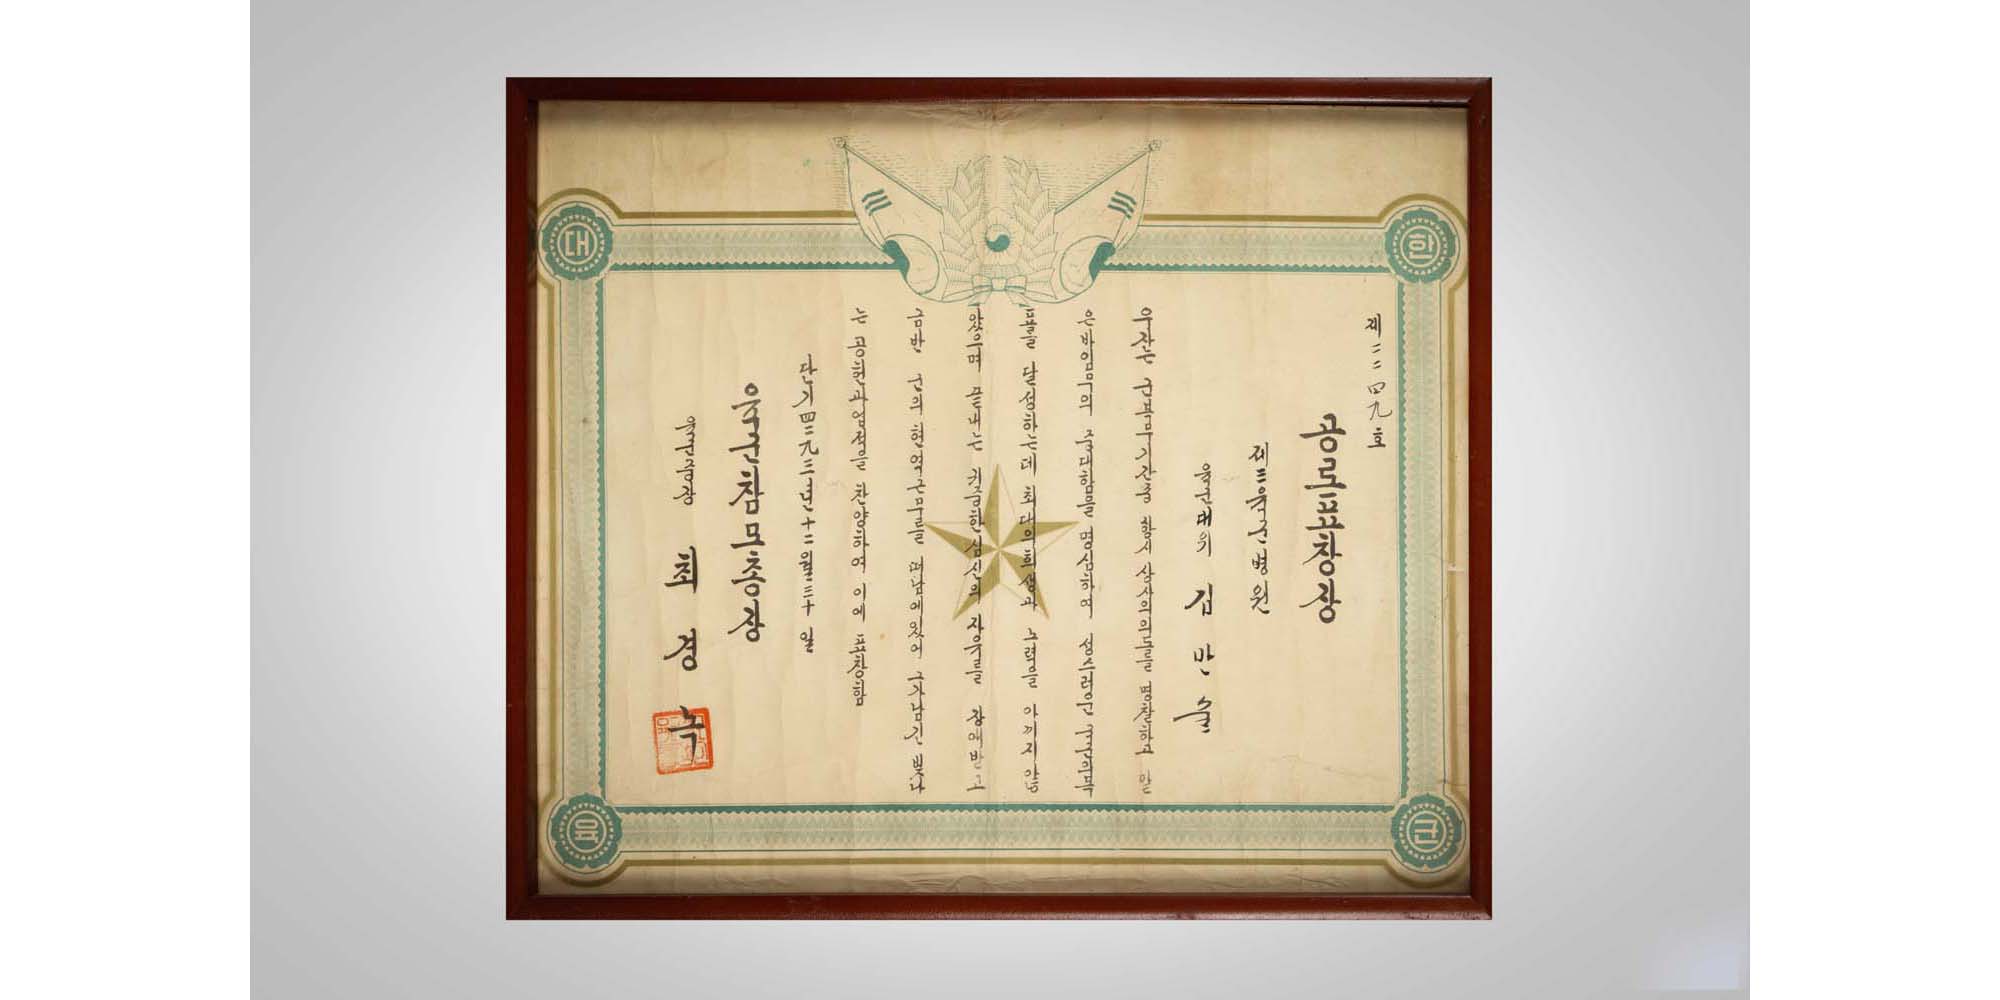 대 한
육 군
제二二四九호
공로표창상
제三육군병원
육군대위 김만술
우자는 군복무기간중 항시 상사의의도를 명찰하고 맡
은바임무의 중대함을 명심하여 성스러운 군의복
표를 달성하는데 최대의희생과 노력을 아끼지 않
았으며 끝내는 귀중한심신의 자유를 장애받고
금반 군의현역근무를 떠남에있어 그가남긴 빛나
는 공헌과업적을 찬양하여 이에 표창함
단기四二九三년十二월三十일
육군참모총장
육군중장 최경녹